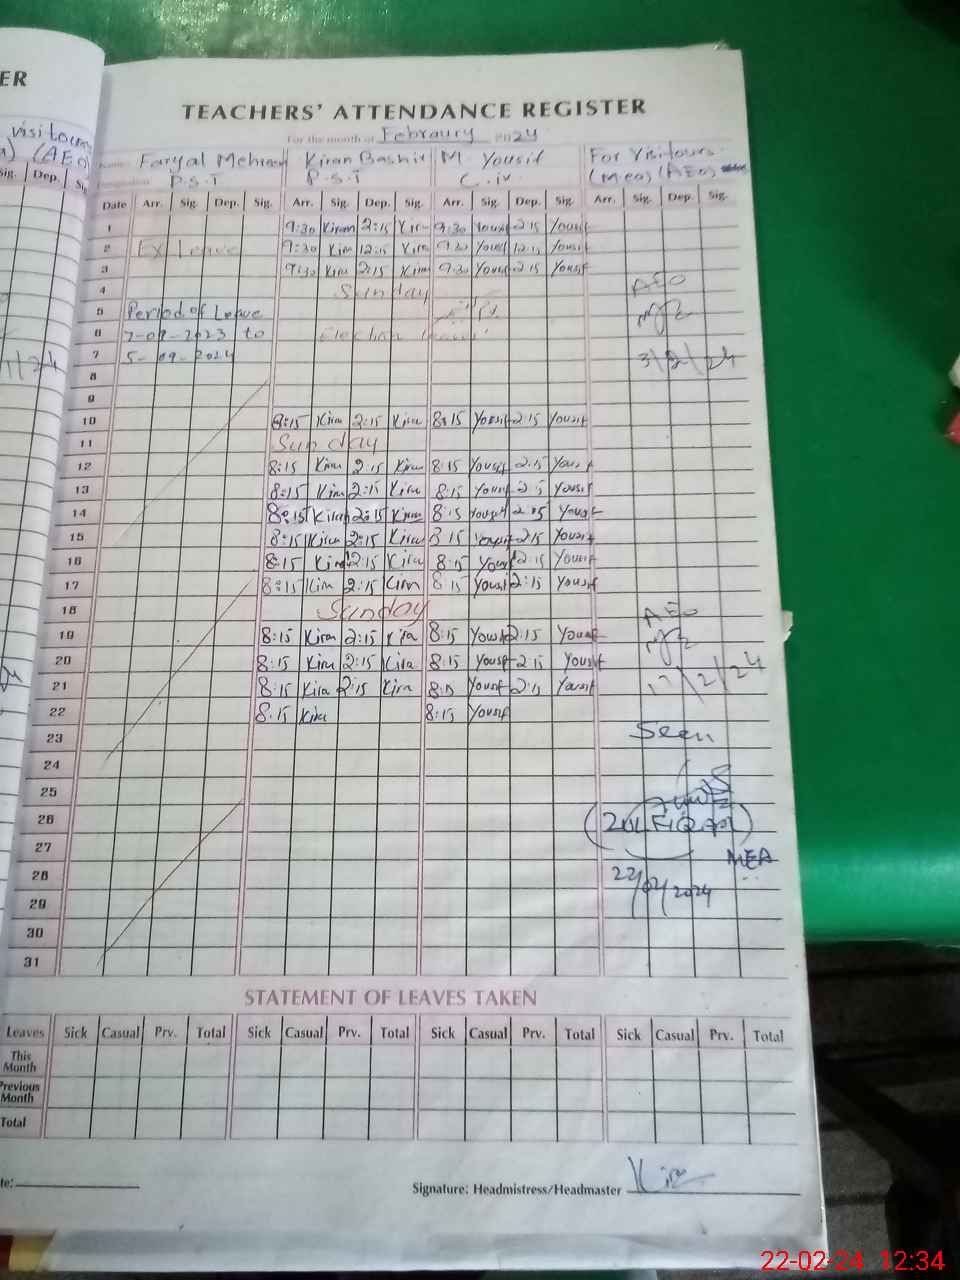 ER
TEACHERS' ATTENDANCE REGISTER
visitours
(AEO)
For the month of Febraury 2024
Name: Faryal Mehreen Kiran Bashir M. Yousif For Visitours
P.S.T P.S.T C.iv (M.eo) (AEO)
Sig. Dep. Sig.
Date Arr. Sig. Dep. Sig. Arr. Sig. Dep. Sig. Arr. Sig. Dep. Sig. Arr. Sig. Dep. Sig.
1 9:30 Kiran 2:15 Kiran 9:30 Yousif 2:15 Yousif
2 Ex Leave 9:30 Kira 12:15 Kira 9:30 Yousif 12:15 Yousif
3 9:30 Kira 2:15 Kira 9:30 Yousif 2:15 Yousif
4 Sunday AEO
5 Period of Leave
6 7-09-2023 to Election
7 5-09-2024 3/2/24
8
9
10 8:15 Kira 2:15 Kira 8:15 Yousif 2:15 Yousif
11 Sunday
12 8:15 Kira 2:15 Kira 8:15 Yousif 2:15 Yousif
13 8:15 Kira 2:15 Kira 8:15 Yousif 2:15 Yousif
14 8:15 Kiran 2:15 Kiran 8:15 Yousif 2:15 Yousif
15 8:15 Kira 2:15 Kira 8:15 Yousif 2:15 Yousif
16 8:15 Kira 12:15 Kira 8:15 Yousif 12:15 Yousif
17 8:15 Kira 2:15 Kira 8:15 Yousif 2:15 Yousif
18 Sunday AEO
19 8:15 Kira 2:15 Kira 8:15 Yousif 2:15 Yousif
20 8:15 Kira 2:15 Kira 8:15 Yousif 2:15 Yousif
21 8:15 Kira 2:15 Kira 8:15 Yousif 2:15 Yousif 17/2/24
22 8:15 Kira 8:15 Yousif
23 Seen
24
25
26 (ZULFIQAR)
27 MEA
28 22/02/2024
29
30
31
STATEMENT OF LEAVES TAKEN
Leaves Sick Casual Prv. Total Sick Casual Prv. Total Sick Casual Prv. Total Sick Casual Prv. Total
This Month
Previous Month
Total
te: Signature: Headmistress/Headmaster Kira
22-02-24 12:34